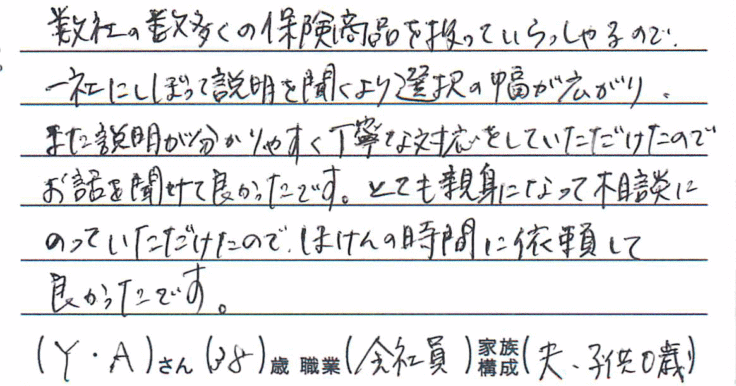 数社の数多くの保険商品を扱っていらっしゃるので、
一社にしぼって説明を聞くより選択の幅が広がり、
また説明が分かりやすく丁寧な対応をしていただけたので
お話を聞けて良かったです。とても親身になって相談に
のっていただけたので、ほけんの時間に依頼して
良かったです。
(Y・A)さん(38)歳 職業(会社員)家族構成(夫、子供0歳)